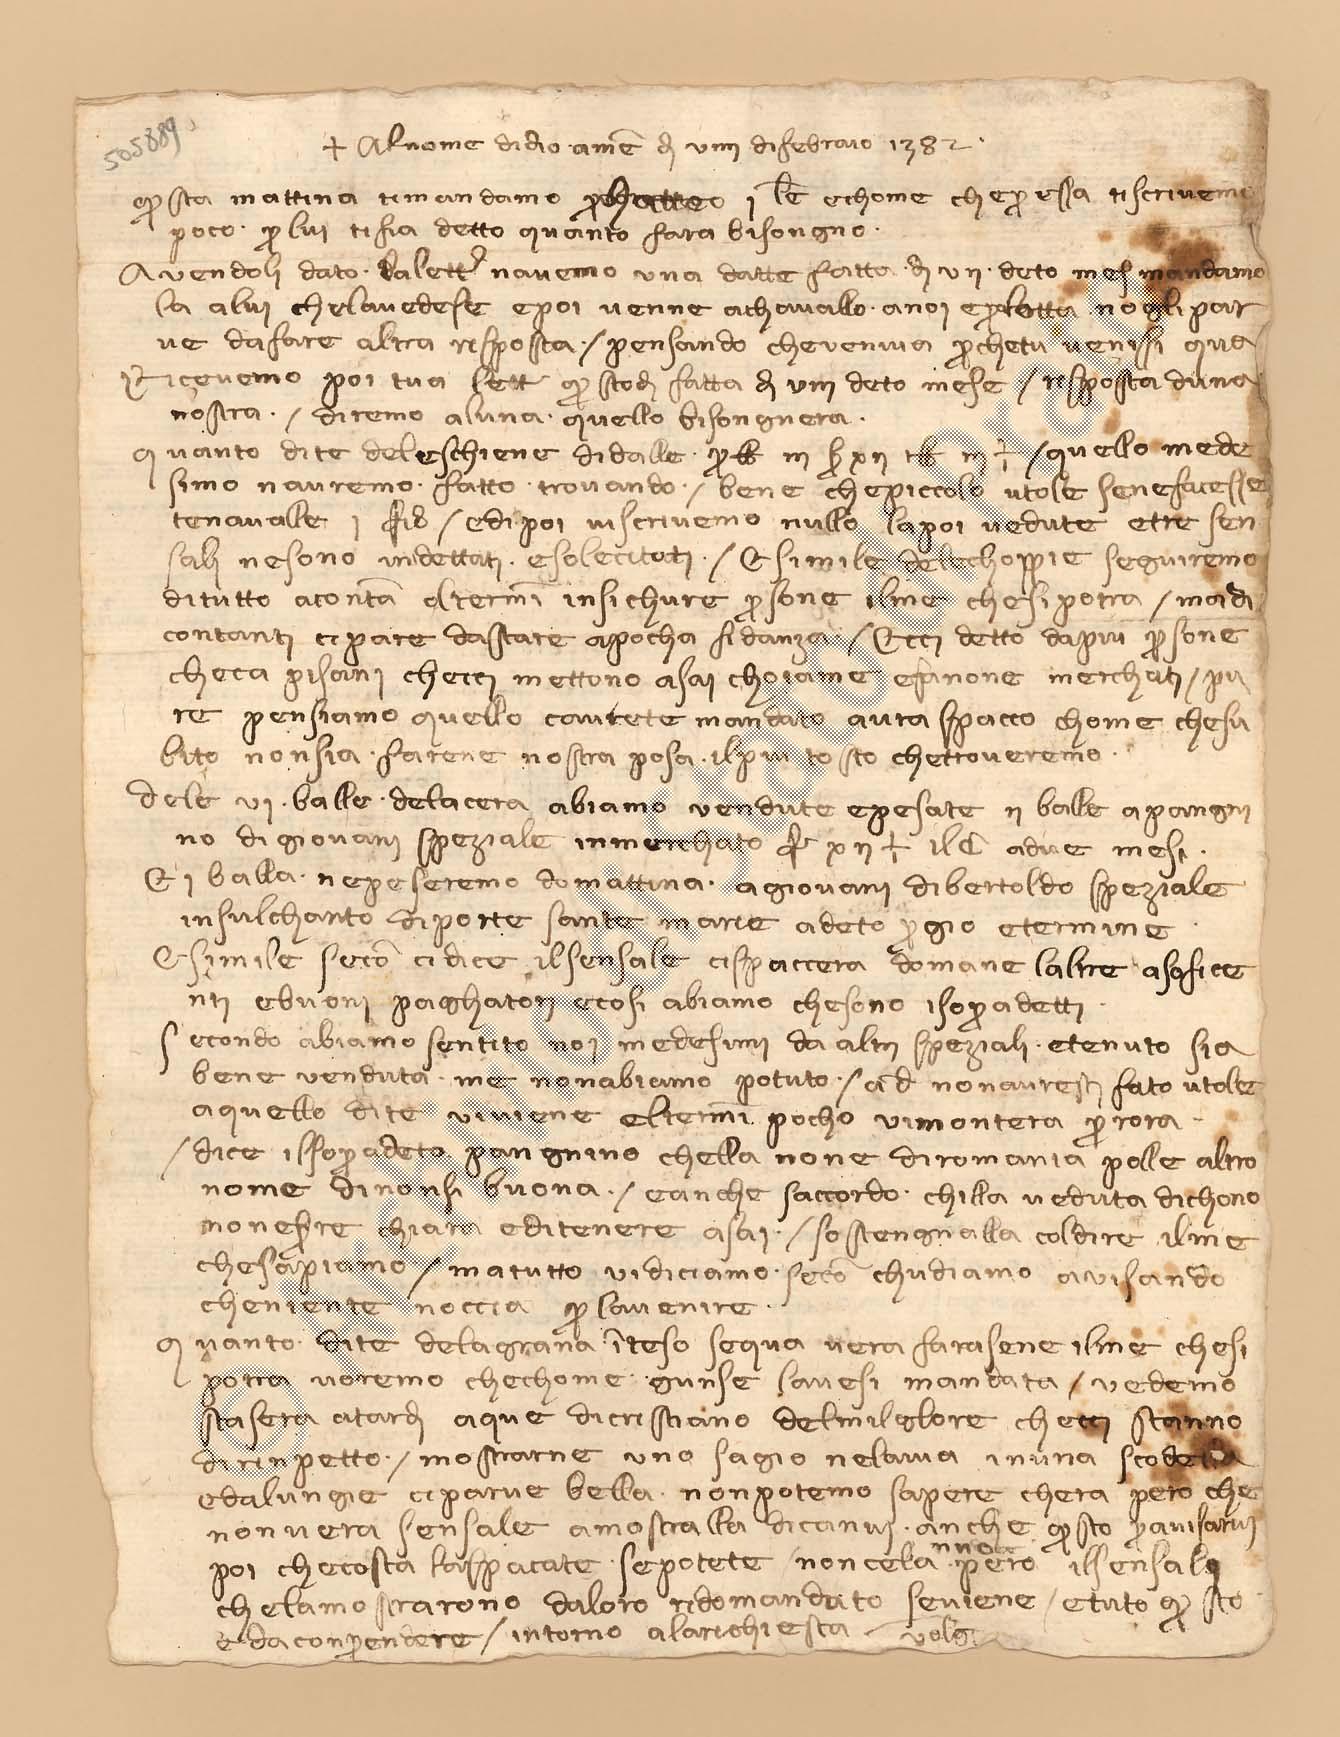 505889
+ Al nome di dio amē dì viiii di febraio 1382
qsta mattina timandamo matteo j lē echome che p essa tiscrivemo
poco p lui tisia detto quanto fara bisongno
Avendoli dato la lettr navemo una datte fatta dì vii deto mes mandamo
la alui chelavedese epoi venne achavallo anoi e letta nogli par
ve dafare altra risposta / pensando chevenivia pchetu venissi qua
Ricevemo poi tua lett qsto dì fatta dì viii deto mese / risposta duna
nostra / diremo aluna quello bisongnera
quanto dite deleschiene didalle / quello mede
simo navremo fatto trovando / bene chepiccolo utole senefacesse
tenavalle j / edipoi viscrivemo nullo lapoi vedute etre sen
sali nesono indettati esolecitati / Esimile delechoppie seguiremo
ditutto acontā oltermī insichure psone ilme chesipotra / madi
contanti cipare dastare apocha fidanza / Ecci detto dapiu psone
checa pisani checci mettono asai choiame efanone merchati / pu
re pensiamo quello cavrete mandato avra spacco chome chesu
bito nonsia farene nostra posa ilpiu tosto chetroveremo
dele vi balle delacera abiamo vendute epesate ii balle apangni
no digiovani speziale inmerchato xii adue mesi
E j balla nepeseremo domattina agiovani dibertoldo speziale
insulchanto diporte sante marie adeto pgio etermine
Esimile secō cidice ilsensale cispaccera domane laltre asofice
nti ebuoni paghatori ecosi abiamo chesono isopadetti
Secondo abiamo sentito noi medesimi da altri speziali etenuto sia
bene venduta me nonabiamo potuto / nonavresti fato utole
aquello dite viviene eltermī pocho vimontera prora
/ dice ilsopadeto pangnino chella none diromania polle altro
nome dinonsi buona / eanche saccordo chilla veduta dichono
nonepre chiara editenere asai / sostengnalla coldire ilme
chesapiamo / matutto vidiciamo secō chudiamo avisando
cheniente noccia p lavenire
quanto dite delagrana īteso sequa vera farasene ilme chesi
potra voremo chechome giunse lavesi mandata / vedemo
stasera atardi aque dicristiano delmilglore checci stanno
dirinpetto / mostrarne uno sagio nelavia inuna scodella
edalungie ciparve bella nonpotemo sapere chera pero che
nonvera sensale amostralla dicanvi anche qsto pavisarvi
poi checosta laspacate sepotete noncela nuoce pero ilsensale
chelamostrarono daloro ridomandato seviene / etuto qsto
edaconprendere / intorno alarichiesta volg